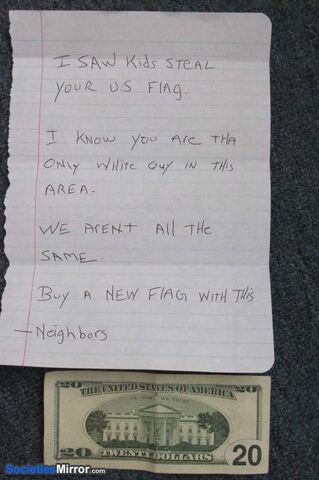 I SAW Kids STEAL
YOUR U.S Flag.
I KNOW YOU ARE THA
ONLY WHITE GUY IN THIS
AREA.
WE ARENT All THE
SAME.
BUY A NEW FLAG WITH THIS
—Neighbors
20 THE UNITED STATES OF AMERICA 20
IN GOD WE TRUST
20 TWENTY DOLLARS 20
SocietiesMirror.com